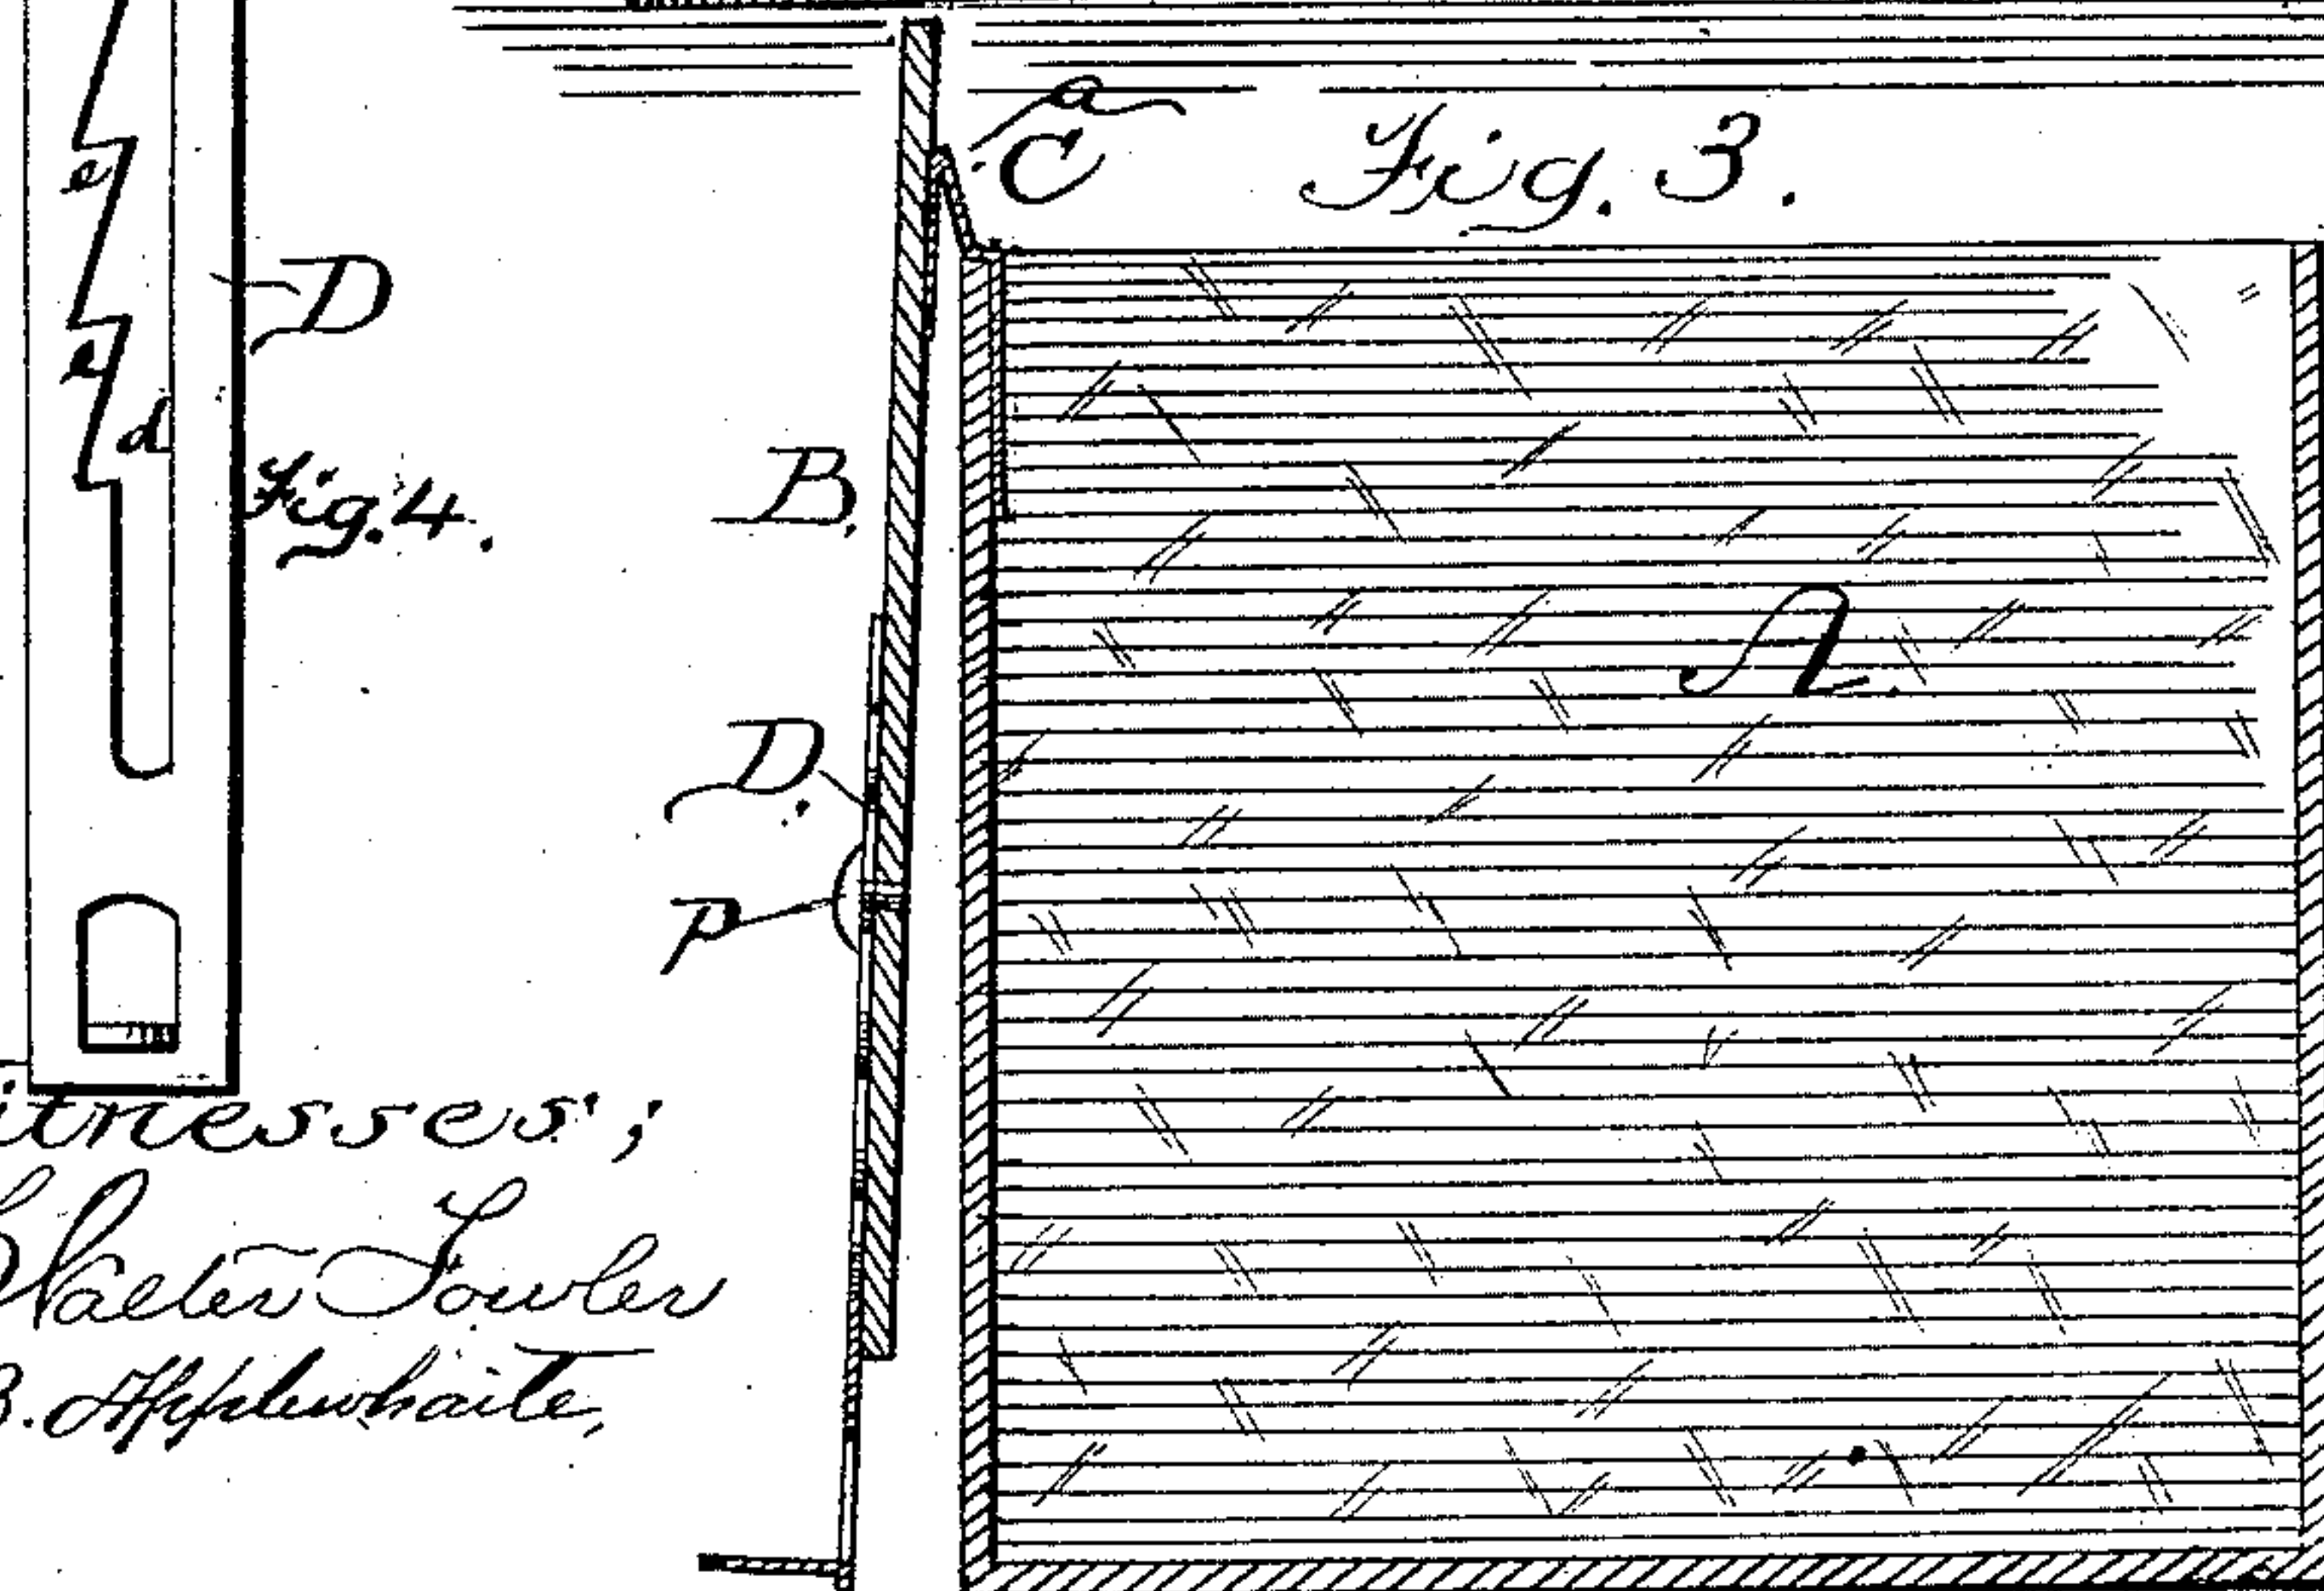 a
C
Fig. 3.
e
D
e
d
Fig. 4.
B.
A.
D.
P
itnesses;
Walter Fowler
B. Applewhaite,